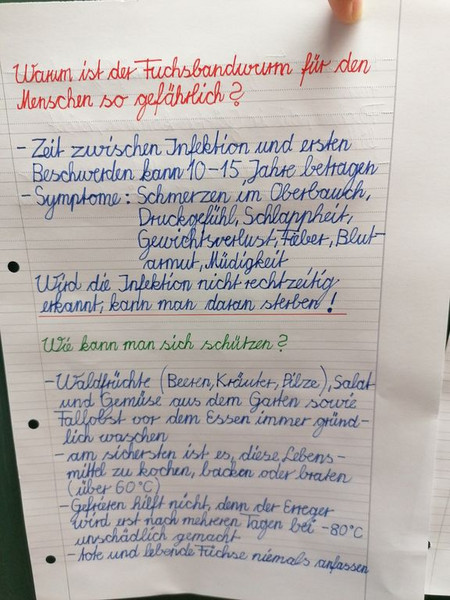 Warum ist der Fuchsbandwurm für den
Menschen so gefährlich?
- Zeit zwischen Infektion und ersten
Beschwerden kann 10-15 Jahre betragen
- Symptome: Schmerzen im Oberbauch,
Druckgefühl, Schlappheit,
Gewichtsverlust, Fieber, Blut-
armut, Müdigkeit
Wird die Infektion nicht rechtzeitig
erkannt, kann man daran sterben!
Wie kann man sich schützen?
- Waldfrüchte (Beeren, Kräuter, Pilze), Salat
und Gemüse aus dem Garten sowie
Fallobst vor dem Essen immer gründ-
lich waschen
- am sichersten ist es, diese Lebens-
mittel zu kochen, backen oder braten
(über 60°C)
- Gefrieren hilft nicht, denn der Erreger
wird erst nach mehreren Tagen bei -80°C
unschädlich gemacht
- tote und lebende Füchse niemals anfassen